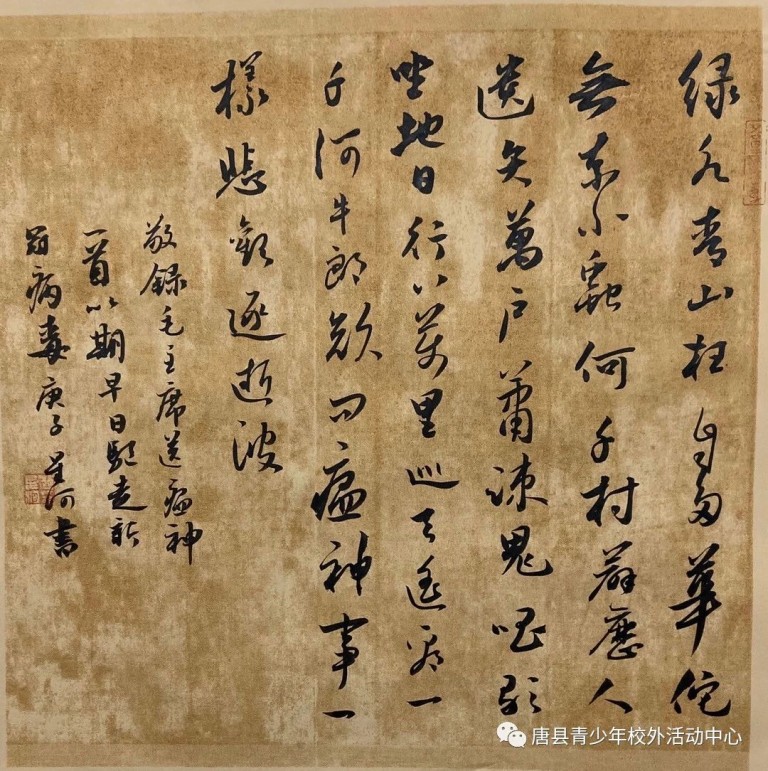 绿水青山枉自多華佗
無奈小蟲何千村薜人
遺矢萬戶蕭疎鬼唱歌
坐地日行八萬里巡天遙看一
千河牛郎欲問瘟神事一
樣悲歡逐逝波
敬錄毛主席送瘟神
一首以期早日驅走新
冠病毒庚子星河書
唐县青少年校外活动中心